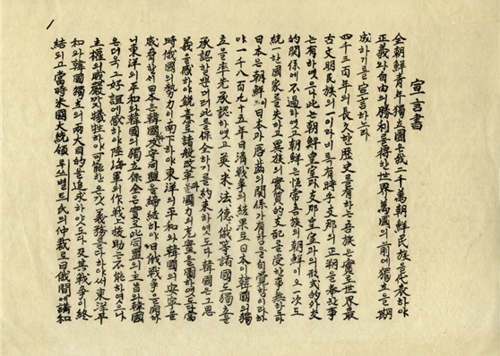 1
宣言書
全朝鮮青年獨立團은我二千萬朝鮮民族을代表하야
正義와自由의勝利를得한世界萬國의前에獨立을期
成하기를宣言하노라
四千三百年의長久한歷史를有하는吾族은實로世界最
古文明民族의一이라비록有時乎支那의正朔을奉한事
는有하엿으나此는朝鮮皇室과支那皇室과의形式的外交
的關係에不過하엿고朝鮮은恒常吾族의朝鮮이오一次도
統一한國家를失하고異族의實質的支配를受한事無하도다
日本은朝鮮이日本과唇齒의關係가有함을自覺함이라하
야一千八百九十五年日清戰爭의結果로日本이韓國의獨
立을率先承認하엿고英,米,法,德,俄等諸國도獨立을
承認할뿐더러此를保全하기를約束하엿도다韓國은그恩
義를感하야銳意로諸般改革과國力의充實을圖하엿도다當
時俄國의勢力이南下하야東洋의平和와韓國의安寧을
威脅할새日本은韓國과攻守同盟을締結하야日俄戰爭을開하
니東洋의平和와韓國의獨立保全은實로此同盟의主旨와韓國
은더욱그好誼에感하야陸海軍의作戰上援助는不能하엿으나
主權의威嚴까지犧牲하야可能한온갖義務를다하야써東洋平
和와韓國獨立의兩大目的을追求하얏도다及其戰爭이終
結되고當時米國大統領루쓰벨트氏의仲裁로日俄間에講和